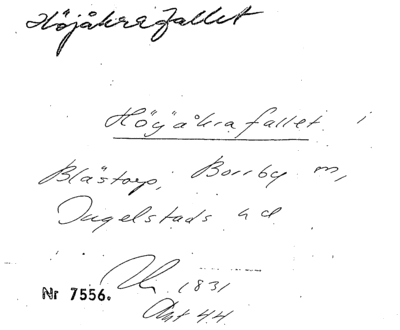 Höjåkrafallet
Höjåkrafallet i
Blästorp, Borrby m,
Ingelstads hd
1831
Nr 7556.
Ant 44